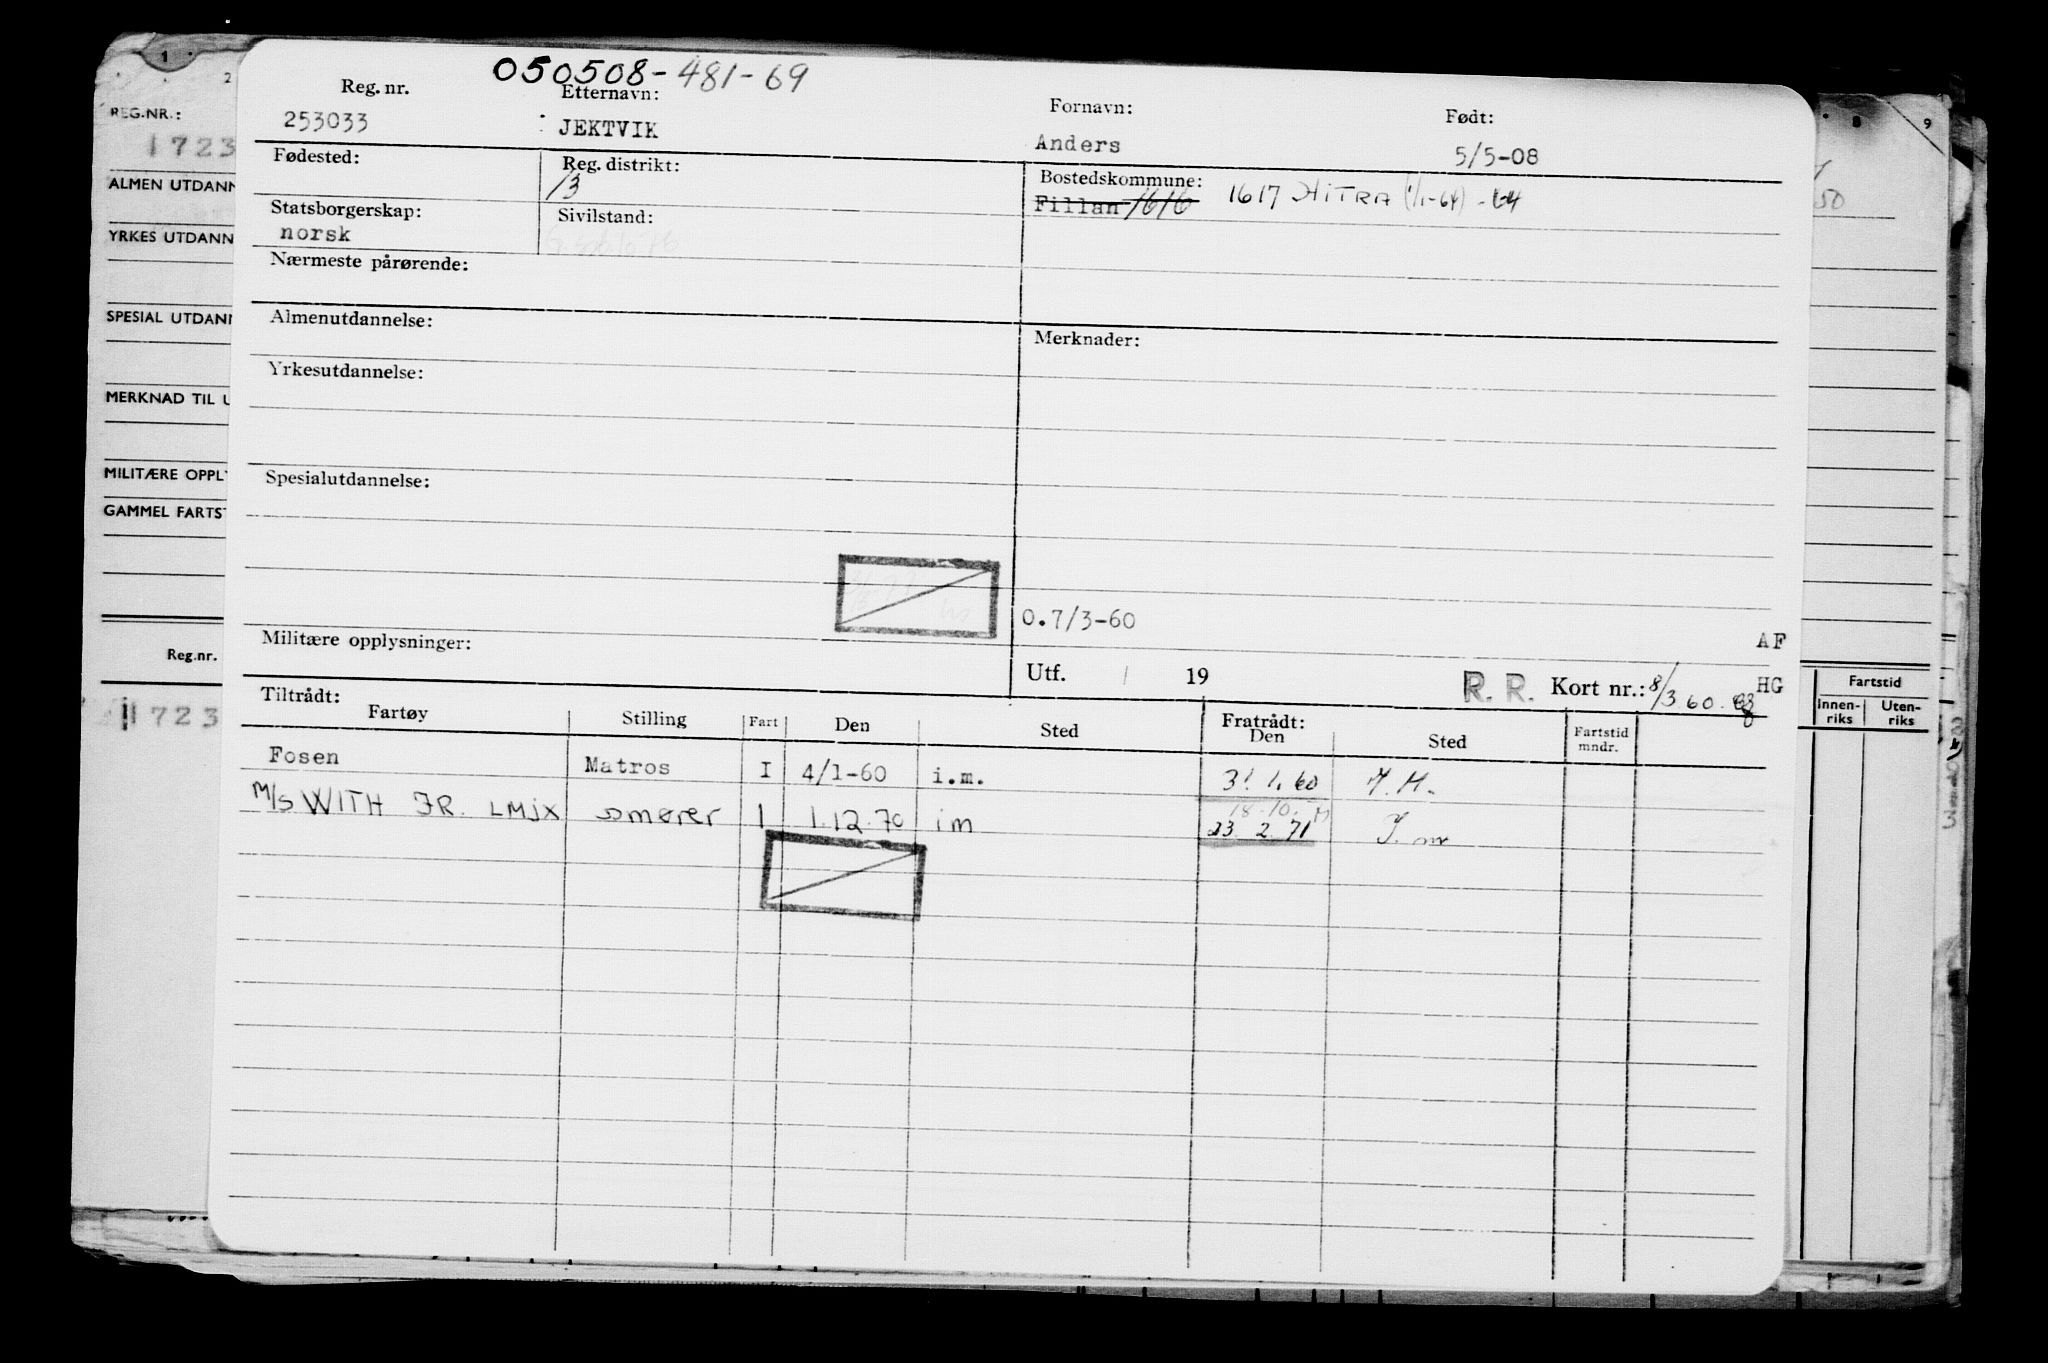 050508-481-69
Reg. nr. Etternavn: Fornavn: Født:
253033 : JEKTVIK Anders 5/5-08
Fødested: Reg. distrikt: Bostedskommune:
13 Fillan 1616 1617 HITRA (1/1-64)
Statsborgerskap: Sivilstand:
norsk
Nærmeste pårørende:
Almenutdannelse: Merknader:
Yrkesutdannelse:
Spesialutdannelse:
0.7/3-60
AF
Militære opplysninger: Utf. / 19 R. R. Kort nr.: 8/3 60. HG
Tiltrådt: Fratrådt:
Fartøy Stilling Fart Den Sted Den Sted Fartstid mndr.
Fosen Matros I 4/1-60 i.m. 31.1.60
M/S WITH JR. LMJX smører I 1.12.70 im 18.10.
23.2.71
1 2 8 9
REG.NR.:
1723
ALMEN UTDANN
50
YRKES UTDANN
SPESIAL UTDANN
MERKNAD TIL U
MILITÆRE OPPLY
GAMMEL FARTST
Reg.nr. Fartstid
Innen-riks Uten-riks
1723